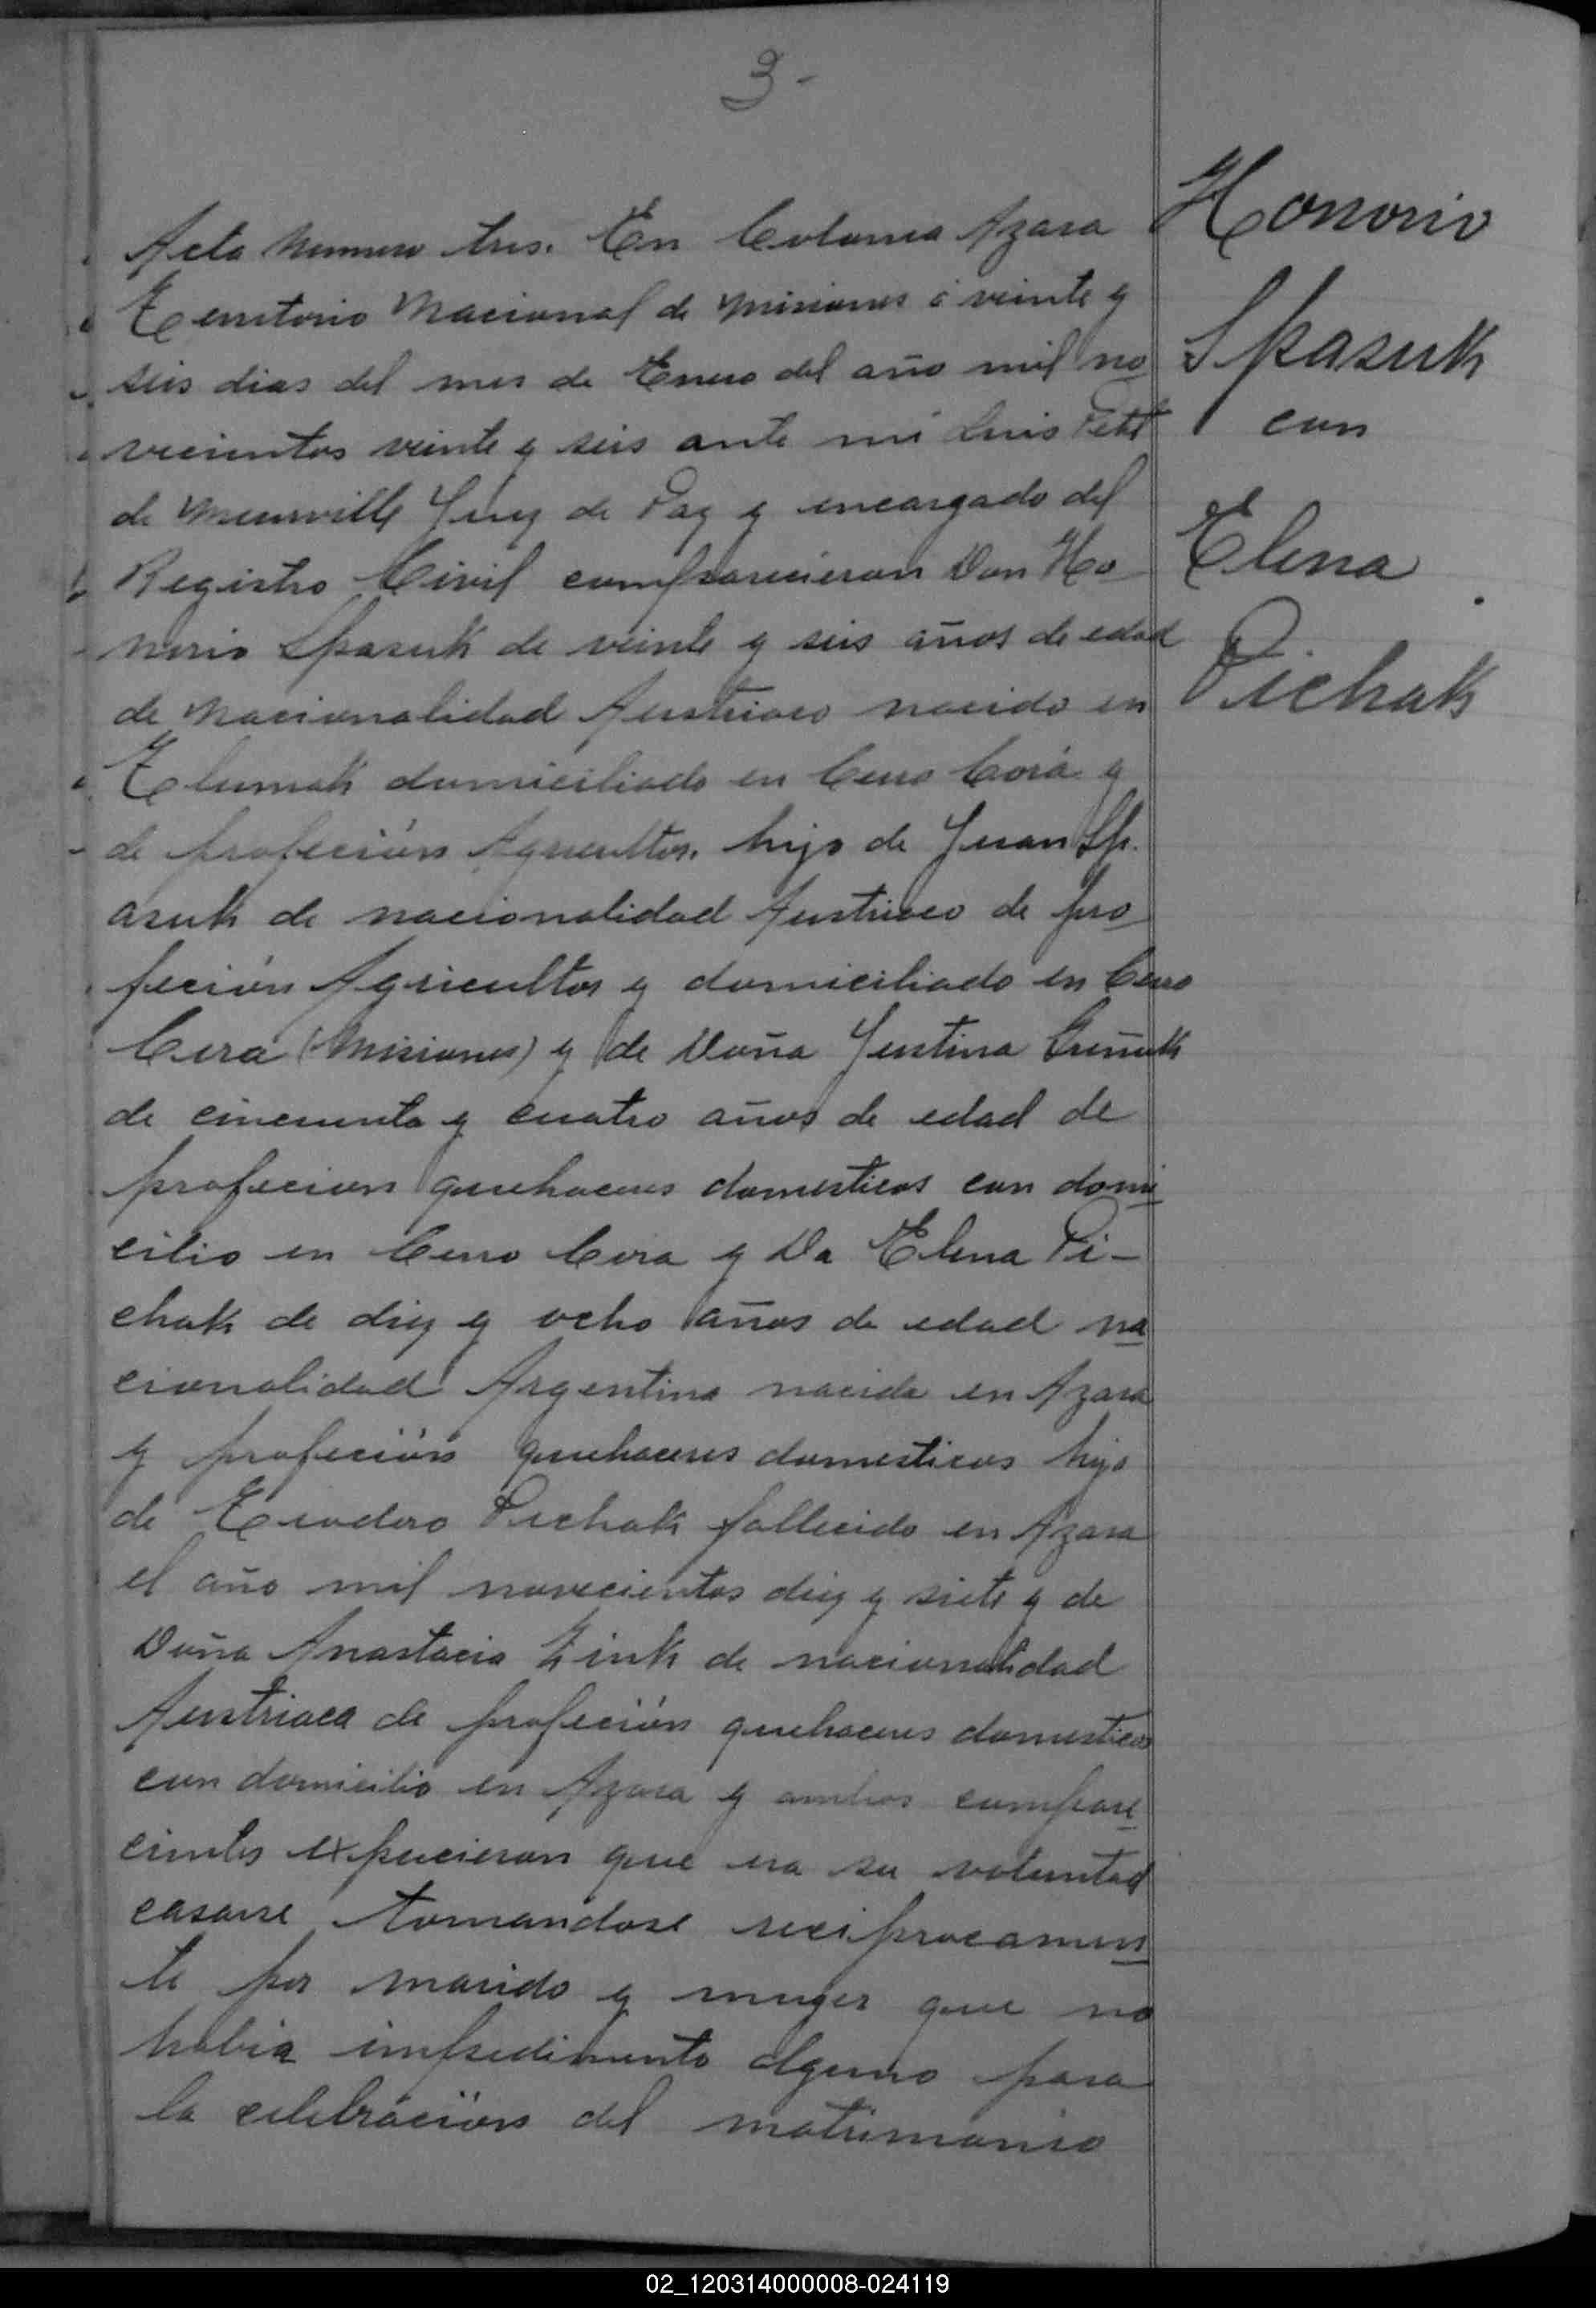 3-
Acta Numero tres. En Colonia Azara
Territorio Nacional de Misiones á veinte y
seis dias del mes de Enero del año mil no
vecientos veinte y seis ante mi Luis Petit
de Meurville Juez de Paz y encargado del
Registro Civil comparecieron Don Ho
norio Spasuk de veinte y seis años de edad
de Nacionalidad Austriaco nacido en
Tlumak domiciliado en Cerro Corá y
de profeción Agricultor. hijo de Juan Sp.
asuk de nacionalidad Austriaco de pro
feción Agricultor y domiciliado en Cerro
Cora (Misiones) y de Doña Justina
de cincuenta y cuatro años de edad de
profecion quehaceres domesticos con domi
cilio en Cerro Cora y Da Elena Pi-
chak de diez y ocho años de edad na
cionalidad Argentina nacida en Azara
y profeción quehaceres domesticos hija
de Teodoro Pichak fallecido en Azara
el año mil novecientos diez y siete y de
Doña Anastacia Zink de nacionalidad
Austriaca de profeción quehaceres domesticos
con domicilio en Azara y ambos compare
cientes expucieron que era su voluntad
casarse tomandose reciprocamen
te por marido y muger que no
habia impedimento alguno para
la celebración del matrimonio
Honorio
Spasuk
con
Elena
Pichak
02_120314000008-024119